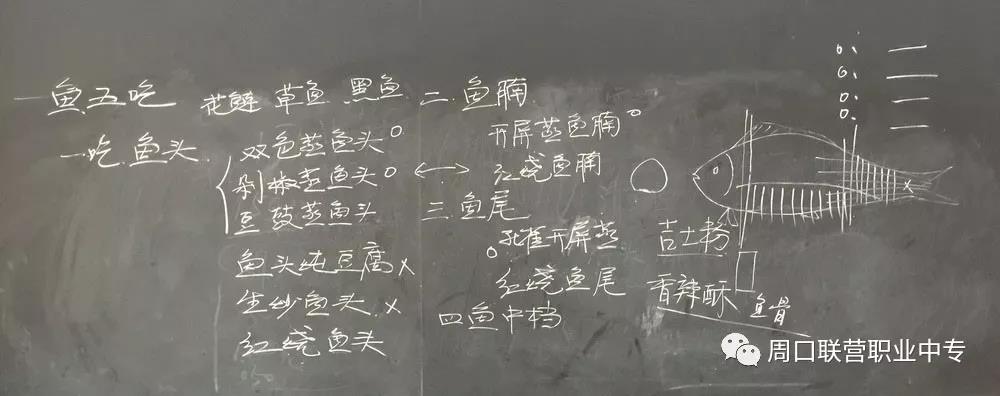 一鱼五吃 花鲢 草鱼 黑鱼
一吃.鱼头.
双色蒸鱼头
剁椒蒸鱼头
豆豉蒸鱼头
鱼头炖豆腐 x
生炒鱼头 x
红烧鱼头
二.鱼腩
开屏蒸鱼腩
红烧鱼腩
三.鱼尾
孔雀开屏蒸
红烧鱼尾
四鱼中档
吉士粉
香辣酥
鱼骨
周口联营职业中专